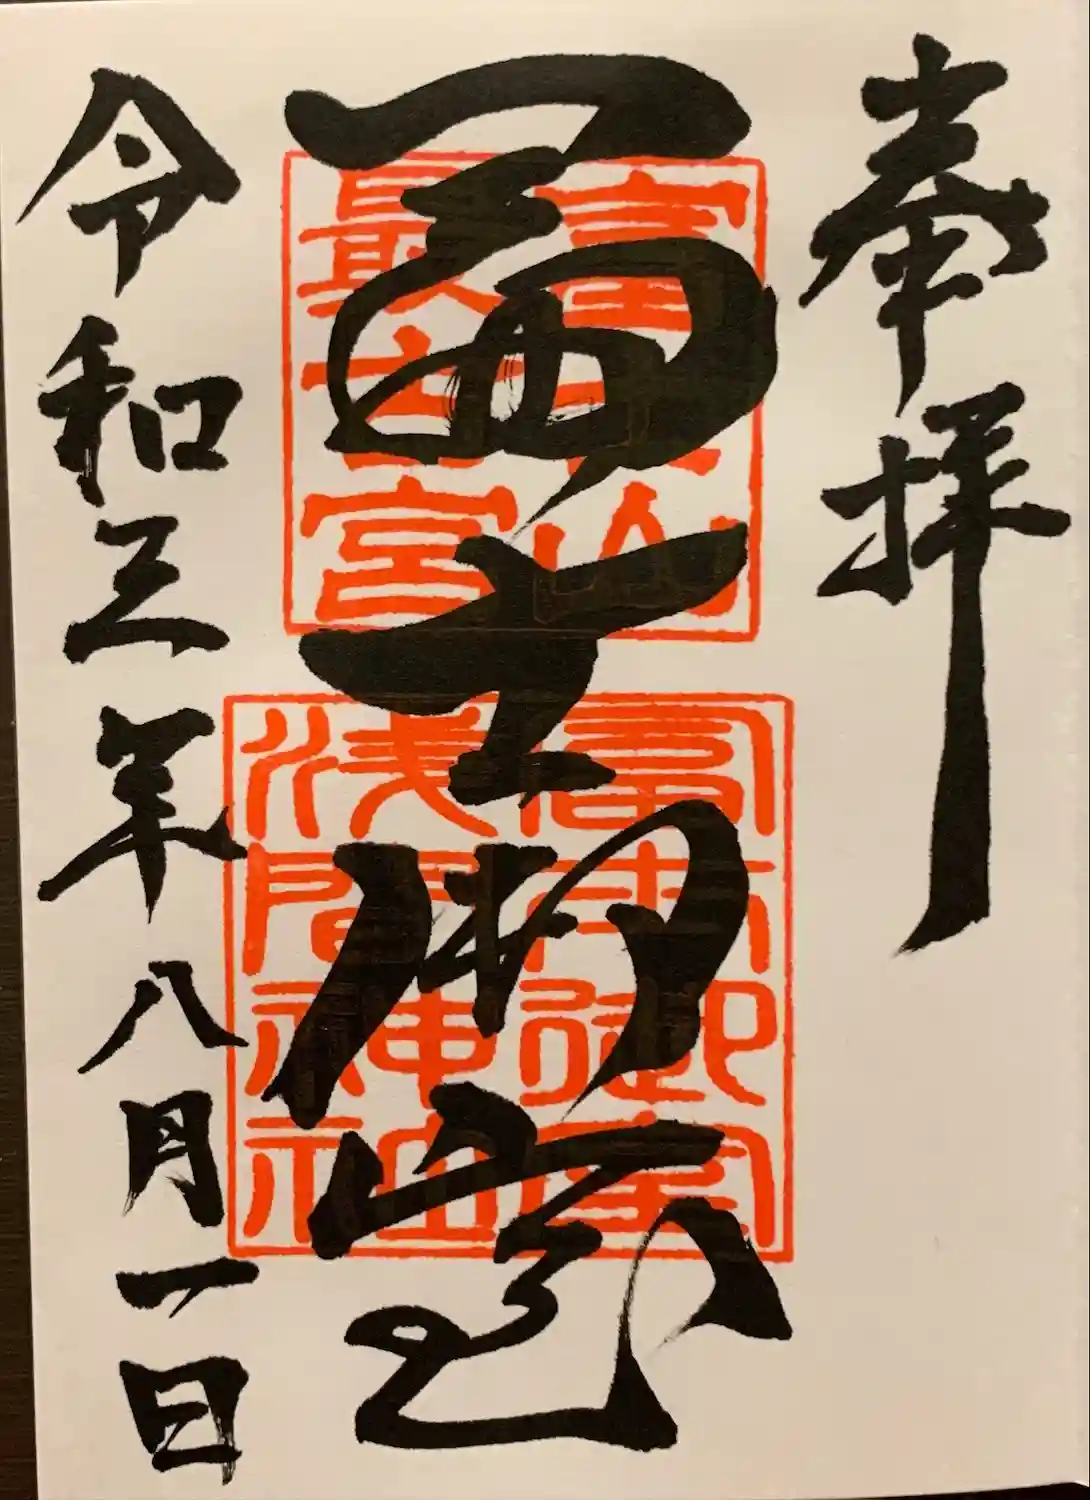 奉拝
冨士御室
富士山
最古宮
冨士御室
浅間神社
令和三年八月一日